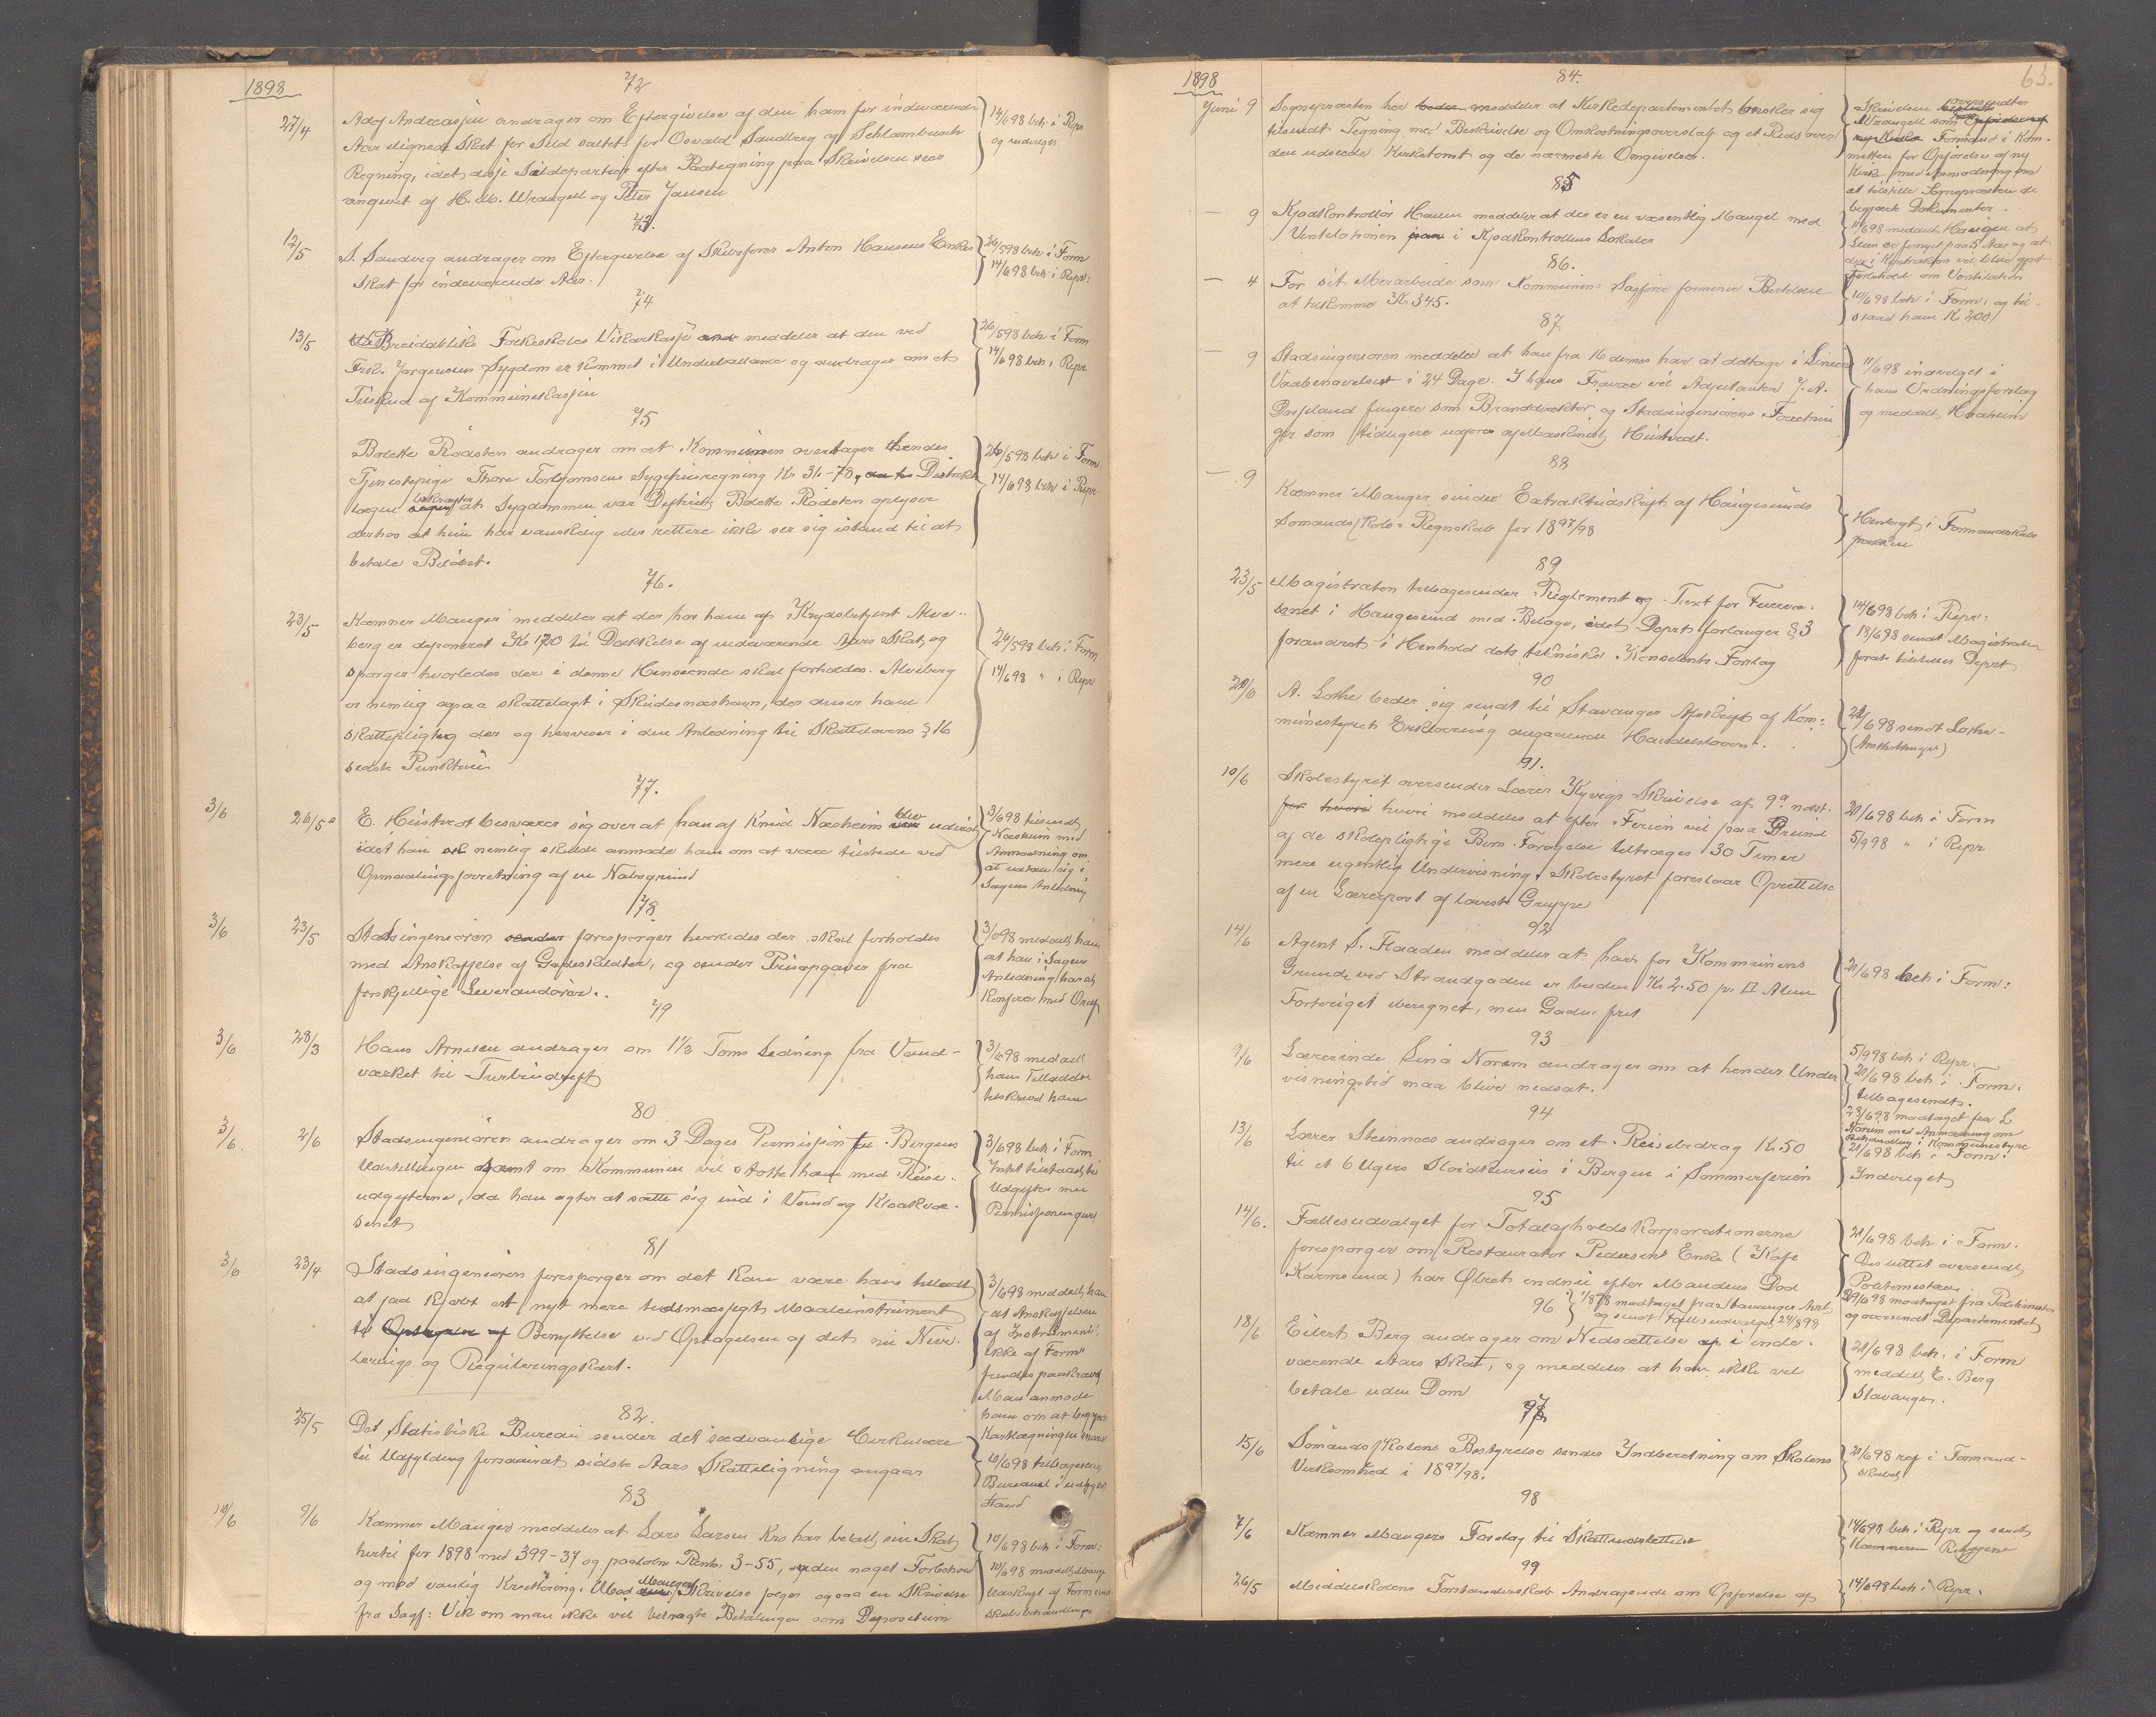 1898
72
27/4 Adolf Andreassen andrager om Eftergivelse af den ham for indeværende
Aar ilignede Skat for Sild saltet for Osvald Sandberg og Schlambusch
Regning, idet disse Sildepartier efter Paategning paa Skrivelsen sees
angivet af H. M. Wrangell og Peter Jansen
14/698 beh i Repr
og indvilget
73.
12/5 S. Sandvig andrager om Eftergivelse af Skibsfører Anton Hansens Enkes
Skat for indeværende Aar.
26/598 beh i Form
14/698 beh i Repr:
74
13/5 Breidabliks Folkeskoles Vikarkasse meddeler at den ved
Frk. Jørgensens Sygdom er kommet i Underballance og andrager om et
Tilskud af Kommunekassen
26/598 beh i Form
14/698 beh i Repr
75
Bolette Rødsten andrager om at Kommunen overtager hendes
Tjenestepige Thore Torbjørnsens Sygehusregning Kr 31-78, Distrikts
lægen bekræfter at Sygdommen var Dyfterit, Bolette Rødsten oplyser
derhos at hun har vanskelig eller rettere ikke ser sig istand til at
betale Beløbet.
26/598 beh i Form
14/698 beh i Repr
76.
23/5 Kæmner Mauger meddeler at der hos ham af Krydsbetjent Alve-
berg er deponeret Kr 170 til Dækkelse af indeværende Aars Skat, og
spørger hvorledes der i denne Henseende skal forholdes. Alveberg
er nemlig ogsaa skattelagt i Skudesneshavn, der anser ham
skattepligtig der og henviser i den Anledning til Skattelovens § 16
sidste Punktum
26/598 beh i Form
14/698 " i Repr
77.
3/6 26/5 E. Hustvedt besværer sig over at han af Knud Næsheim blev udvist
idet han nemlig skulde anmode ham om at være tilstede ved
Opmaalingsforretning af en Nabogrund
3/698 tilsendt
Næsheim med
Anmodning om
at udtale sig i
Sagens Anledning
78.
3/6 23/5 Stadsingeniøren forespørger hvorledes der skal forholdes
med Anskaffelse af Gadeskildter, og sender Prisopgaver fra
forskjellige Leverandører.
3/698 meddelt ham
at han i Sagens
Anledning har at
konferere med Ordf
79
3/6 28/3 Hans Arnesen andrager om 1 1/2 Toms Ledning fra Vand-
værket til Turbindrift
3/698 meddelt
ham Tilladelse
80
3/6. 2/6 Stadsingeniøren andrager om 3 Dages Permission til Bergens
Udstillingen samt om Kommunen vil støtte ham med Reise-
udgifterne, da han agter at sætte sig ind i Vand og Kloakvæ-
senet
3/698 beh i Form
Intet tilstaaet til
Udgifter men
Permissionen givet
81
3/6 23/4 Stadsingeniøren forespørger om det kan være ham tilladt
at faa kjøbt et nyt mere tidsmæssigt Maaleinstrument
til Benyttelse ved Optagelsen af det nu Nivel-
lerings og Reguleringskart.
3/698 meddelt ham
at Anskaffelsen
af Instrumentet
ikke af Form
fundes paakrævet
Man anmode
ham om at begynde
Kartlægningen snarest
82.
25/5 Det Statistiske Bureau sender det sædvanlige Cirkulære
til Udfyldning forsaavidt sidste Aars Skatteligning angaar
10/698 tilbagesendt
Bureauet i udfyldt
Stand
83
10/6 9/6 Kæmner Mauger meddeler at Lars Larsen Kro har betalt sin Skat
hertil for 1898 med 399-37 og paaløbne Renter 3-55, uden noget Forbehold
og mod vanlig Kvittering. Med Maugers Skrivelse følger ogsaa en Skrivelse
fra Sagf: Vik om man ikke vil betragte Betalingen som Depositum
10/698 beh i Form:
10/698 meddelt Mauger
Udskrift af Formand-
skabsbehandlingen
1898
63.
84.
Juni 9 Sognepræsten her meddeler at Kirkedepartementet ønsker sig
tilsendt Tegning med Beskrivelse og Omkostningsoverslag og et Rids over
den udseede Kirketomt og de nærmeste Omgivelser.
Skrivelsen oversendtes
Wrangell som Formand i Kom-
mitteen for Opførelse af ny
Kirke med Anmodning om
at tilstille Sognepræsten de
begjærte Dokumenter.
85
— 9 Kjødkontrollør Hansen meddeler at der er en væsentlig Mangel med
Ventilationen i Kjødkontrollens Lokaler
11/698 meddelt Haugen at
Leien er fornyet paa 5 Aar og at
der i Kontrakten vil blive gjort
Forbehold om Ventilation
86.
— 4 For sit Merarbeide som Kommunens Sagfører formener Bertelsen
at tilkomme Kr 345.
10/698 beh i Form: og til-
staaet ham Kr 200
87
— 9 Stadsingeniøren meddeler at han fra 16 dennes har at deltage i Liniens
Vaabenøvelser i 24 Dage. I hans Fravær vil Adjutanten J. A.
Dufsland fungere som Branddirektør og Stadsingeniørens Forretnin-
ger som tidligere udføres af Maskinist Hustvedt.
11/698 indvilget i
hans Ordningsforslag
og meddelt Hodtum
88
— 9 Kæmner Mauger sender Extraktudskrift af Haugesunds
Sømandsskole-Regnskab for 1897/98
Henlagt i Formandskabs
pakken
89
23/5 Magistraten tilbagesender Reglement og Taxt for Feiervæ-
senet i Haugesund med Bilage, idet Deprt forlanger § 3
forandret i Henhold dets tekniske Konsulents Forslag
14/698 beh i Repr:
18/698 sendt Magistraten
forat tilstilles Deprt
90
20/6 A. Lothe beder sig sendt til Stavanger Afskrift af Kom-
munestyrets Erklæring angaaende Handelsloven.
22/698 sendt Lothe
(Amtstinget)
91.
10/6 Skolestyret oversender Lærer Kyvigs Skrivelse af 9de næst.
hvori meddeles at efter Ferien vil paa Grund
af de skolepligtige Børns Forøgelse tiltrænges 30 Timer
mere ugentlig Undervisning. Skolestyret foreslaar Oprettelse
af en Lærerpost af laveste Gruppe
21/698 beh i Form
5/998 " i Repr
92
14/6 Agent S. Haaden meddeler at han for Kommunens
Grunde ved Strandgaden er buden Kr 2.50 pr. □ Alen
Fortouget iberegnet, men Gaden frit
21/698 beh i Form:
93
9/6 Lærerinde Lina Norem andrager om at hendes Under
visningstid maa blive nedsat.
5/998 beh i Repr.
21/698 beh i Form:
tilbagesendt.
23/698 modtaget fra L
Norem med Anmodning om
Behandling i Kommunestyre
94
13/6 Lærer Steinnæs andrager om et Reisebidrag Kr 50
til et 6 Ugers Sløidkursus i Bergen i Sommerferien
21/698 beh i Form:
Indvilget
95
14/6. Fællesudvalget for Totalafholds Korporationerne
forespørger om Restauratør Pedersens Enke (Kafe
Karmsund) har Ølret endnu efter Mandens Død
1/878 modtaget fra Stavanger Amt
og sendt Fællesudvalget 24/898
21/698 beh i Form.
Besluttet oversendt
Politimesteren
29/698 modtaget fra Politimesteren
og oversendt Departementet
96
18/6 Eilert Berg andrager om Nedsættelse i inde-
værende Aars Skat, og meddeler at han ikke vil
betale uden Dom
21/698 beh i Form
meddelt E. Berg
Stavanger.
97
15/6 Sømandsskolens Bestyrelse sender Indberetning om Skolens
Virksomhed i 1897/98.
21/698 ref i Formand-
skabet
98
7/6 Kæmner Maugers Forslag til Skatteudslettelse
14/698 beh i Repr og sendt
Kæmneren
99
26/5 Middelskolens Forstanderskab Andragende om Opførelse af
14/698 beh i Repr.